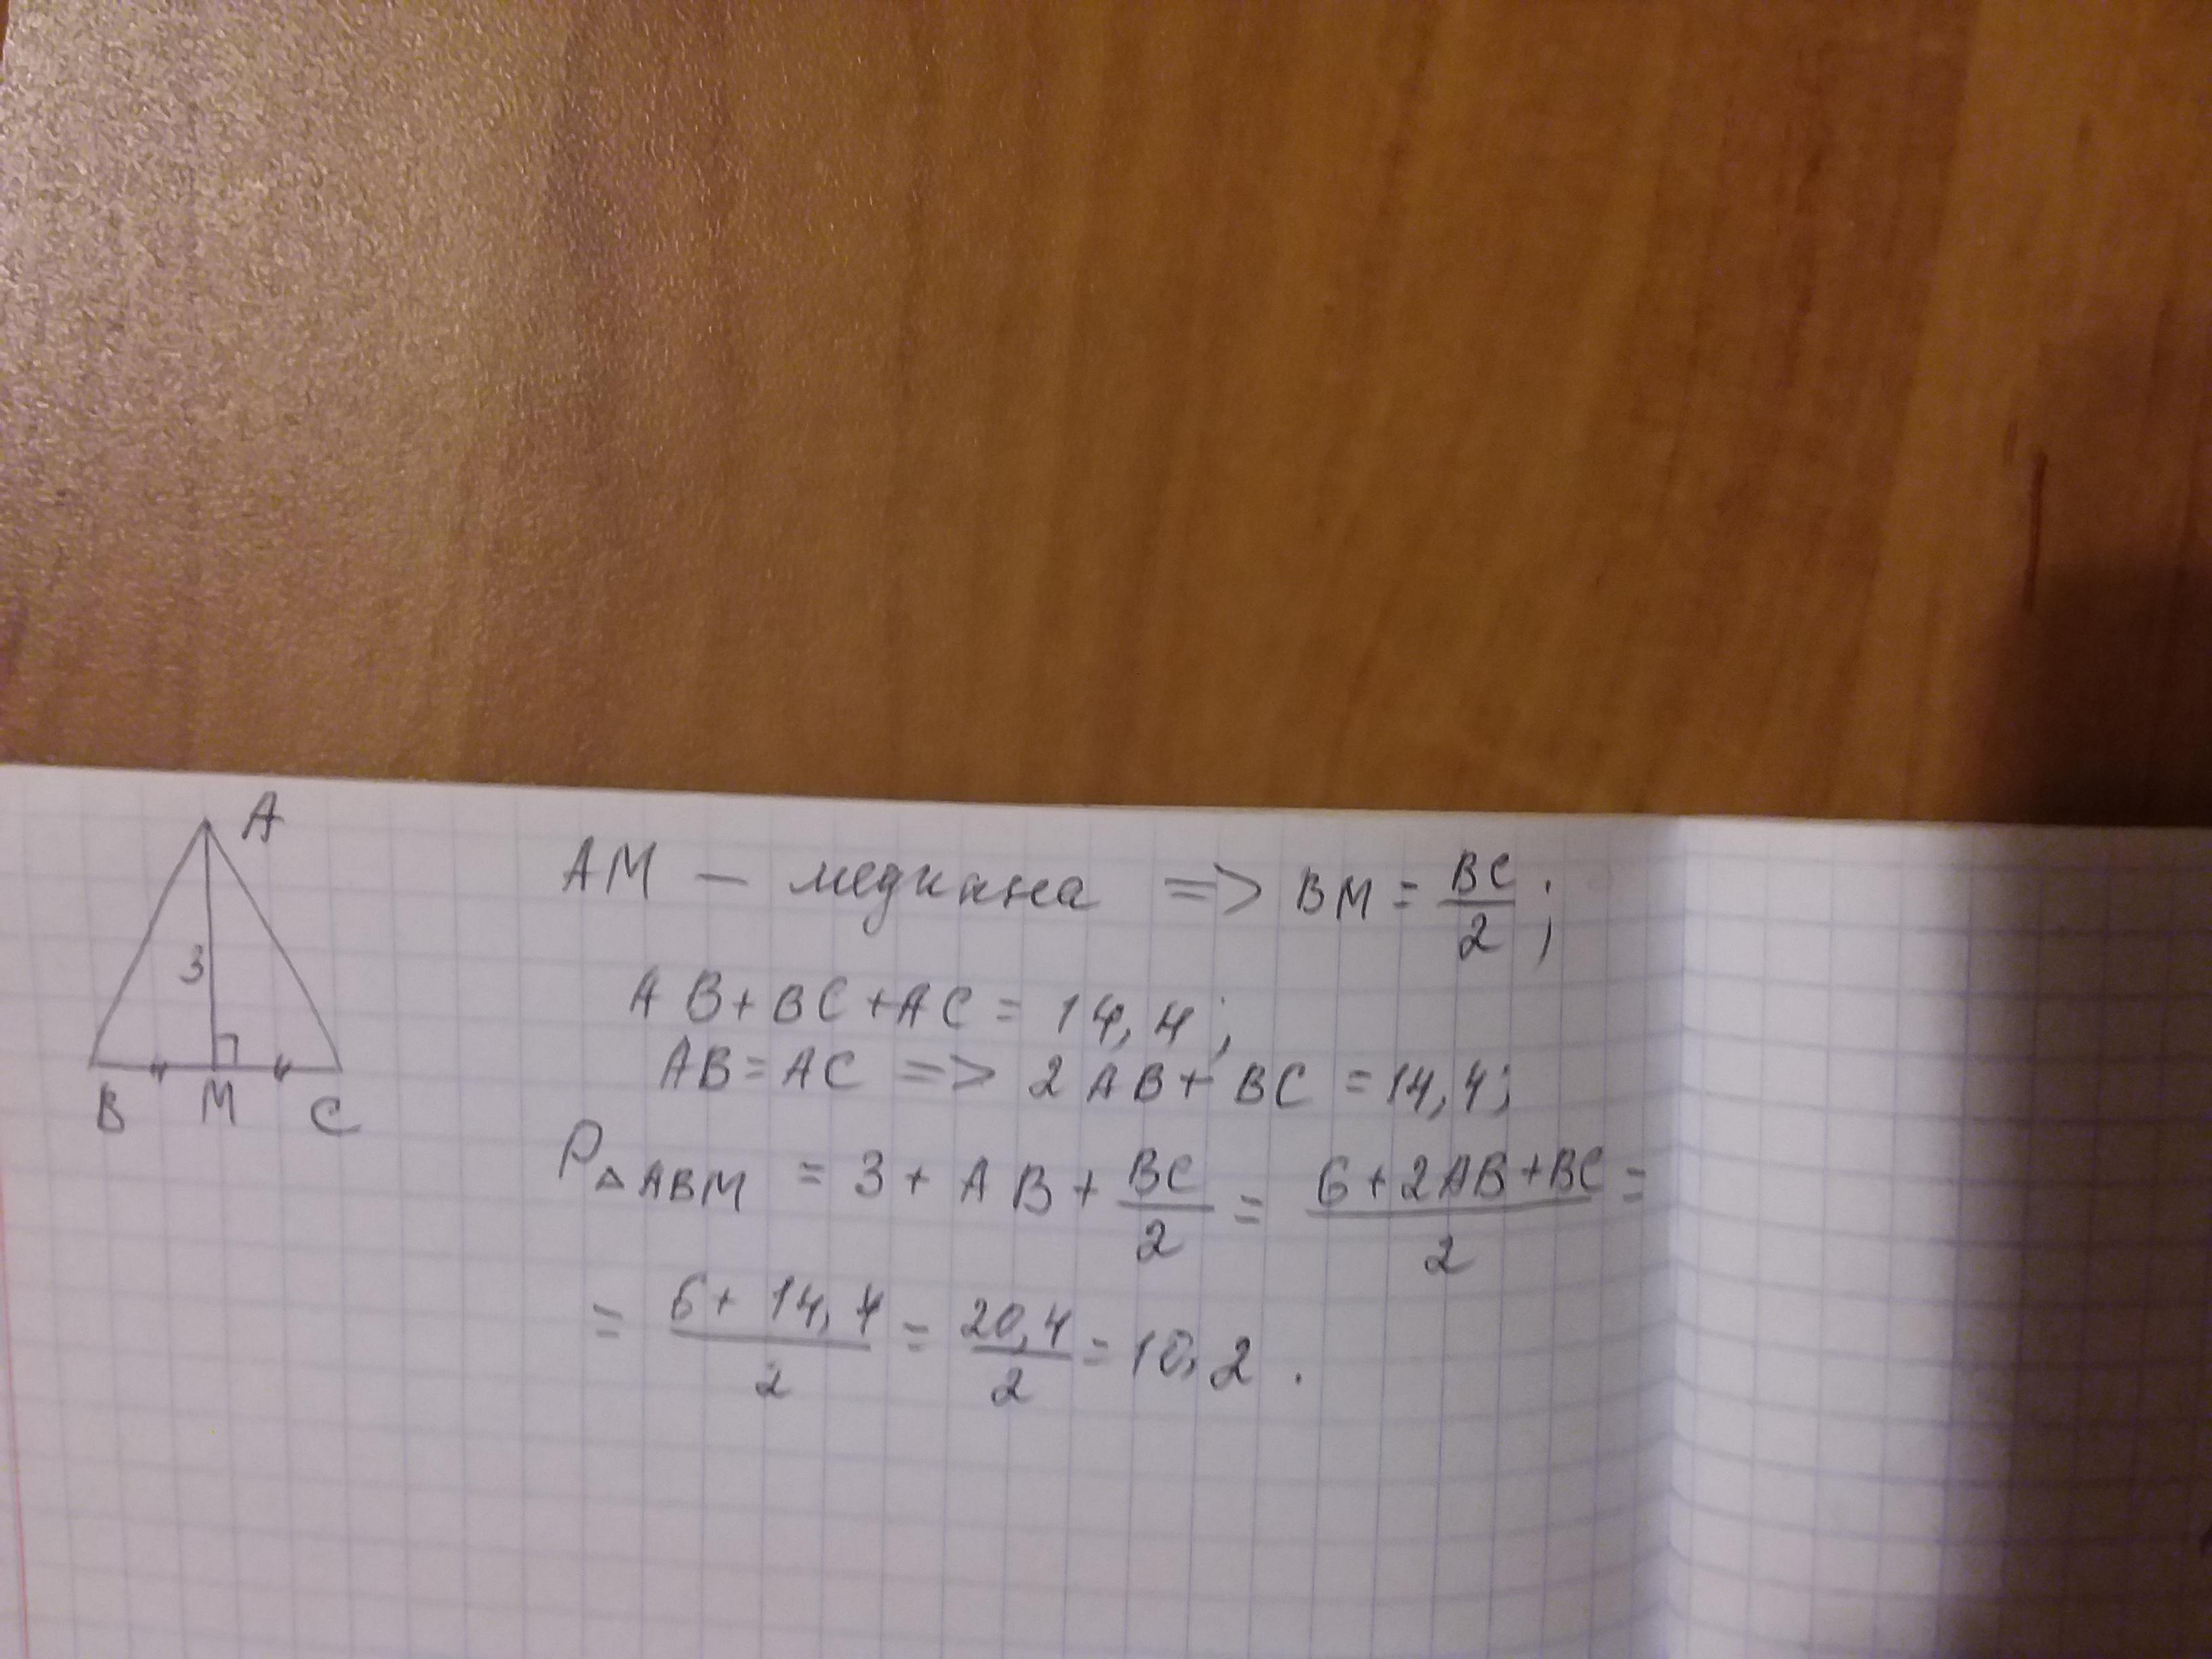 A
3
B M C
AM — медиана => BM = BC/2;
AB+BC+AC = 14,4;
AB=AC => 2AB+BC =14,4;
P△ABM = 3+AB+BC/2 = (6+2AB+BC)/2 =
= (6+14,4)/2 = 20,4/2 = 10,2.